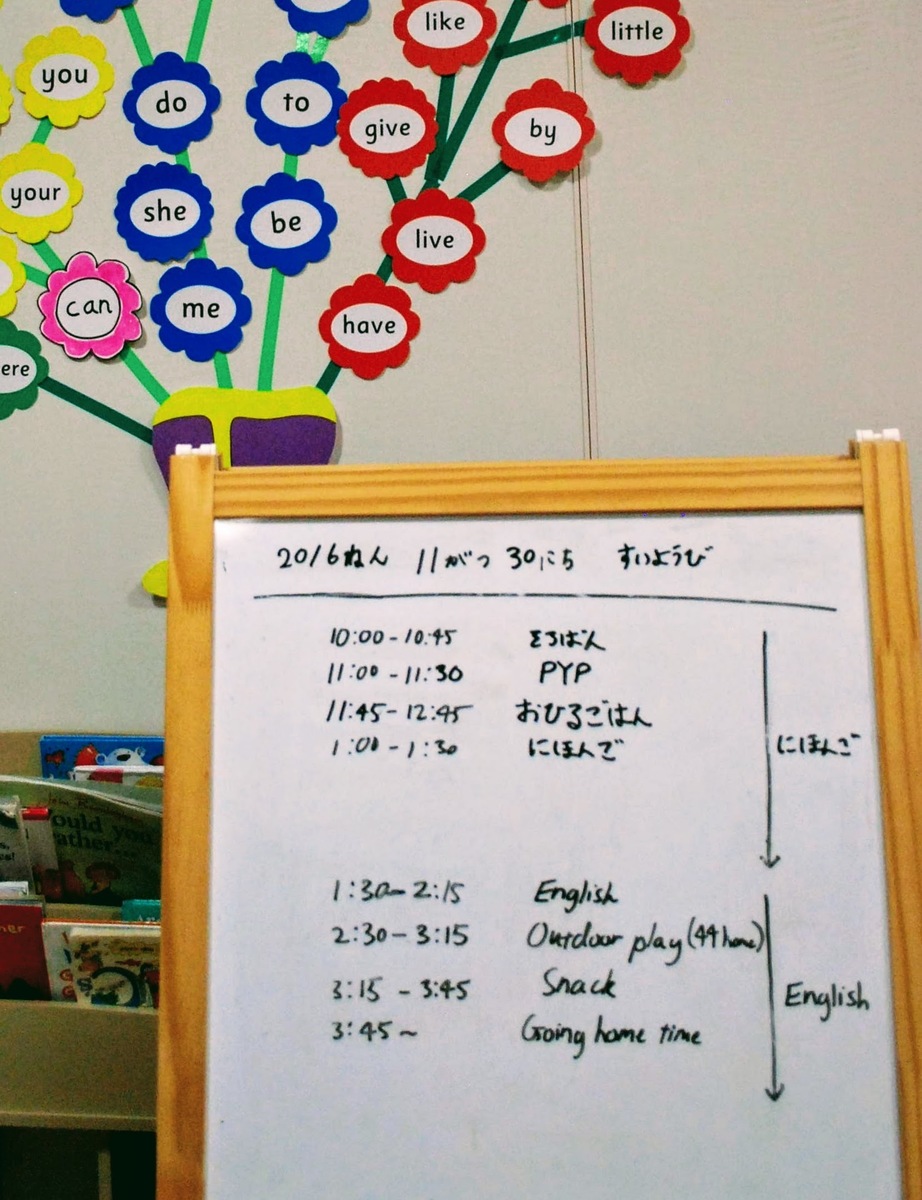 like
little
you
do
to
give
by
your
she
be
live
can
me
have
ere
2016ねん 11がつ 30にち すいようび
10:00-10:45 そろばん
11:00-11:30 PYP
11:45-12:45 おひるごはん
1:00-1:30 にほんご
にほんご
1:30-2:15 English
2:30-3:15 Outdoor play (44 home)
3:15-3:45 Snack
English
3:45~ Going home time
ould you
ather...